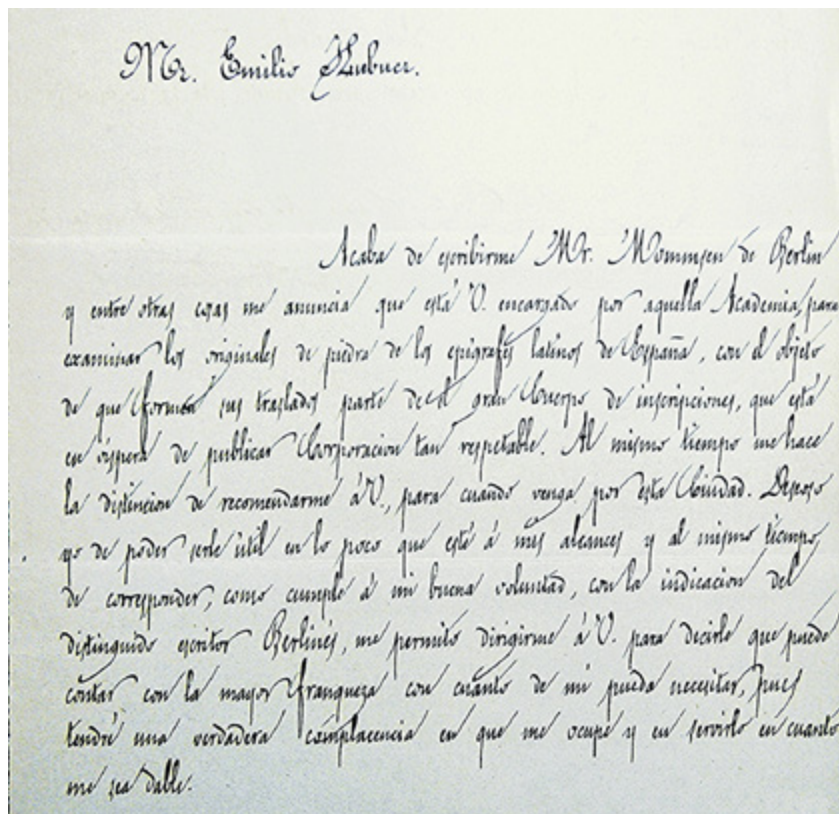 Mr. Emilio Hubner.
Acaba de escribirme Mr. Mommsen de Berlin
y entre otras cosas me anuncia que está V. encargado por aquella Academia, para
examinar los originales de piedra de los epigrafes latinos de España, con el objeto
de que formen sus traslados parte del gran Cuerpo de inscripciones, que está
en víspera de publicar Corporacion tan respetable. Al mismo tiempo me hace
la distincion de recomendarme á V., para cuando venga por esta Ciudad. Deseoso
yo de poder serle útil en lo poco que esté á mis alcances y al mismo tiempo,
de corresponder, como cumple á mi buena voluntad, con la indicacion del
distinguido escritor Berlinés, me permito dirigirme á V. para decirle que puede
contar con la mayor franqueza con cuanto de mi pueda necesitar, pues
tendré una verdadera complacencia en que me ocupe y en servirlo en cuanto
me sea dable.